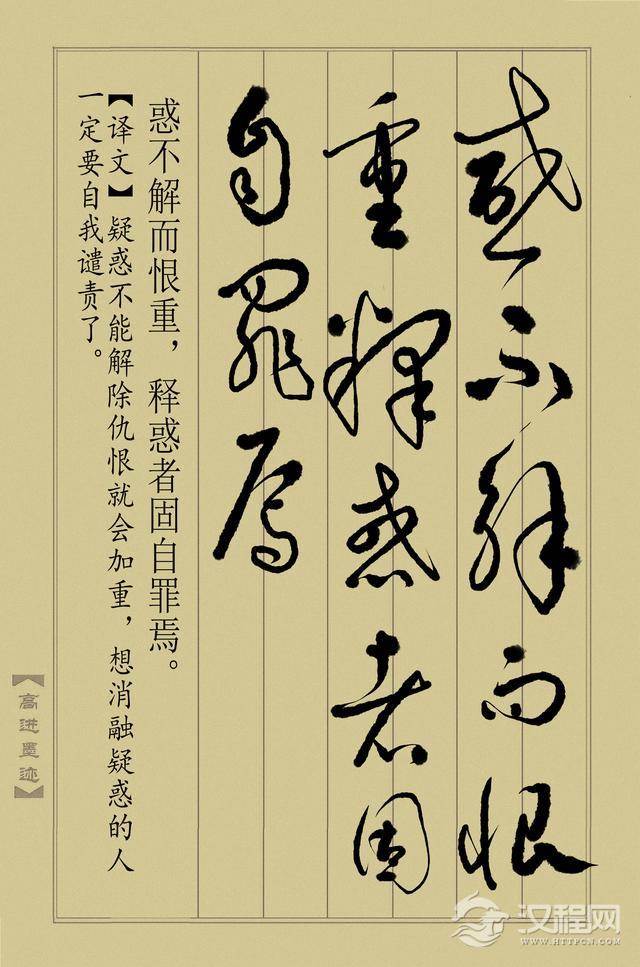 惑不解而恨
重释惑者固
自罪焉
惑不解而恨重，释惑者固自罪焉。
【译文】疑惑不能解除仇恨就会加重，想消融疑惑的人
一定要自我谴责了。
【高进墨迹】
汉程网
WWW.HTTPCN.COM